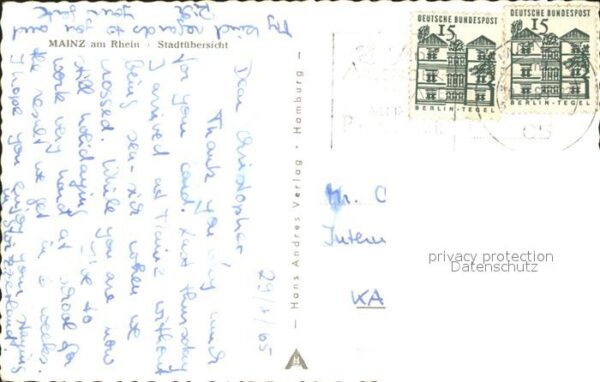 MAINZ am Rhein · Stadtübersicht
29/7/65
Dear Christopher
Thank you very much
for your card. Last thursday
I arrived at Mainz without
being sea-sick when we
crossed. While you are now
still holidaying to
work very hard at school for
the result we get in 3 weeks.
I hope you enjoy your staying
in
My kind regards to you and
your
— Hans Andres Verlag · Hamburg —
DEUTSCHE BUNDESPOST
15
BERLIN-TEGEL
DEUTSCHE BUNDESPOST
15
BERLIN-TEGEL
Mr. C
Intern
KA
privacy protection
Datenschutz